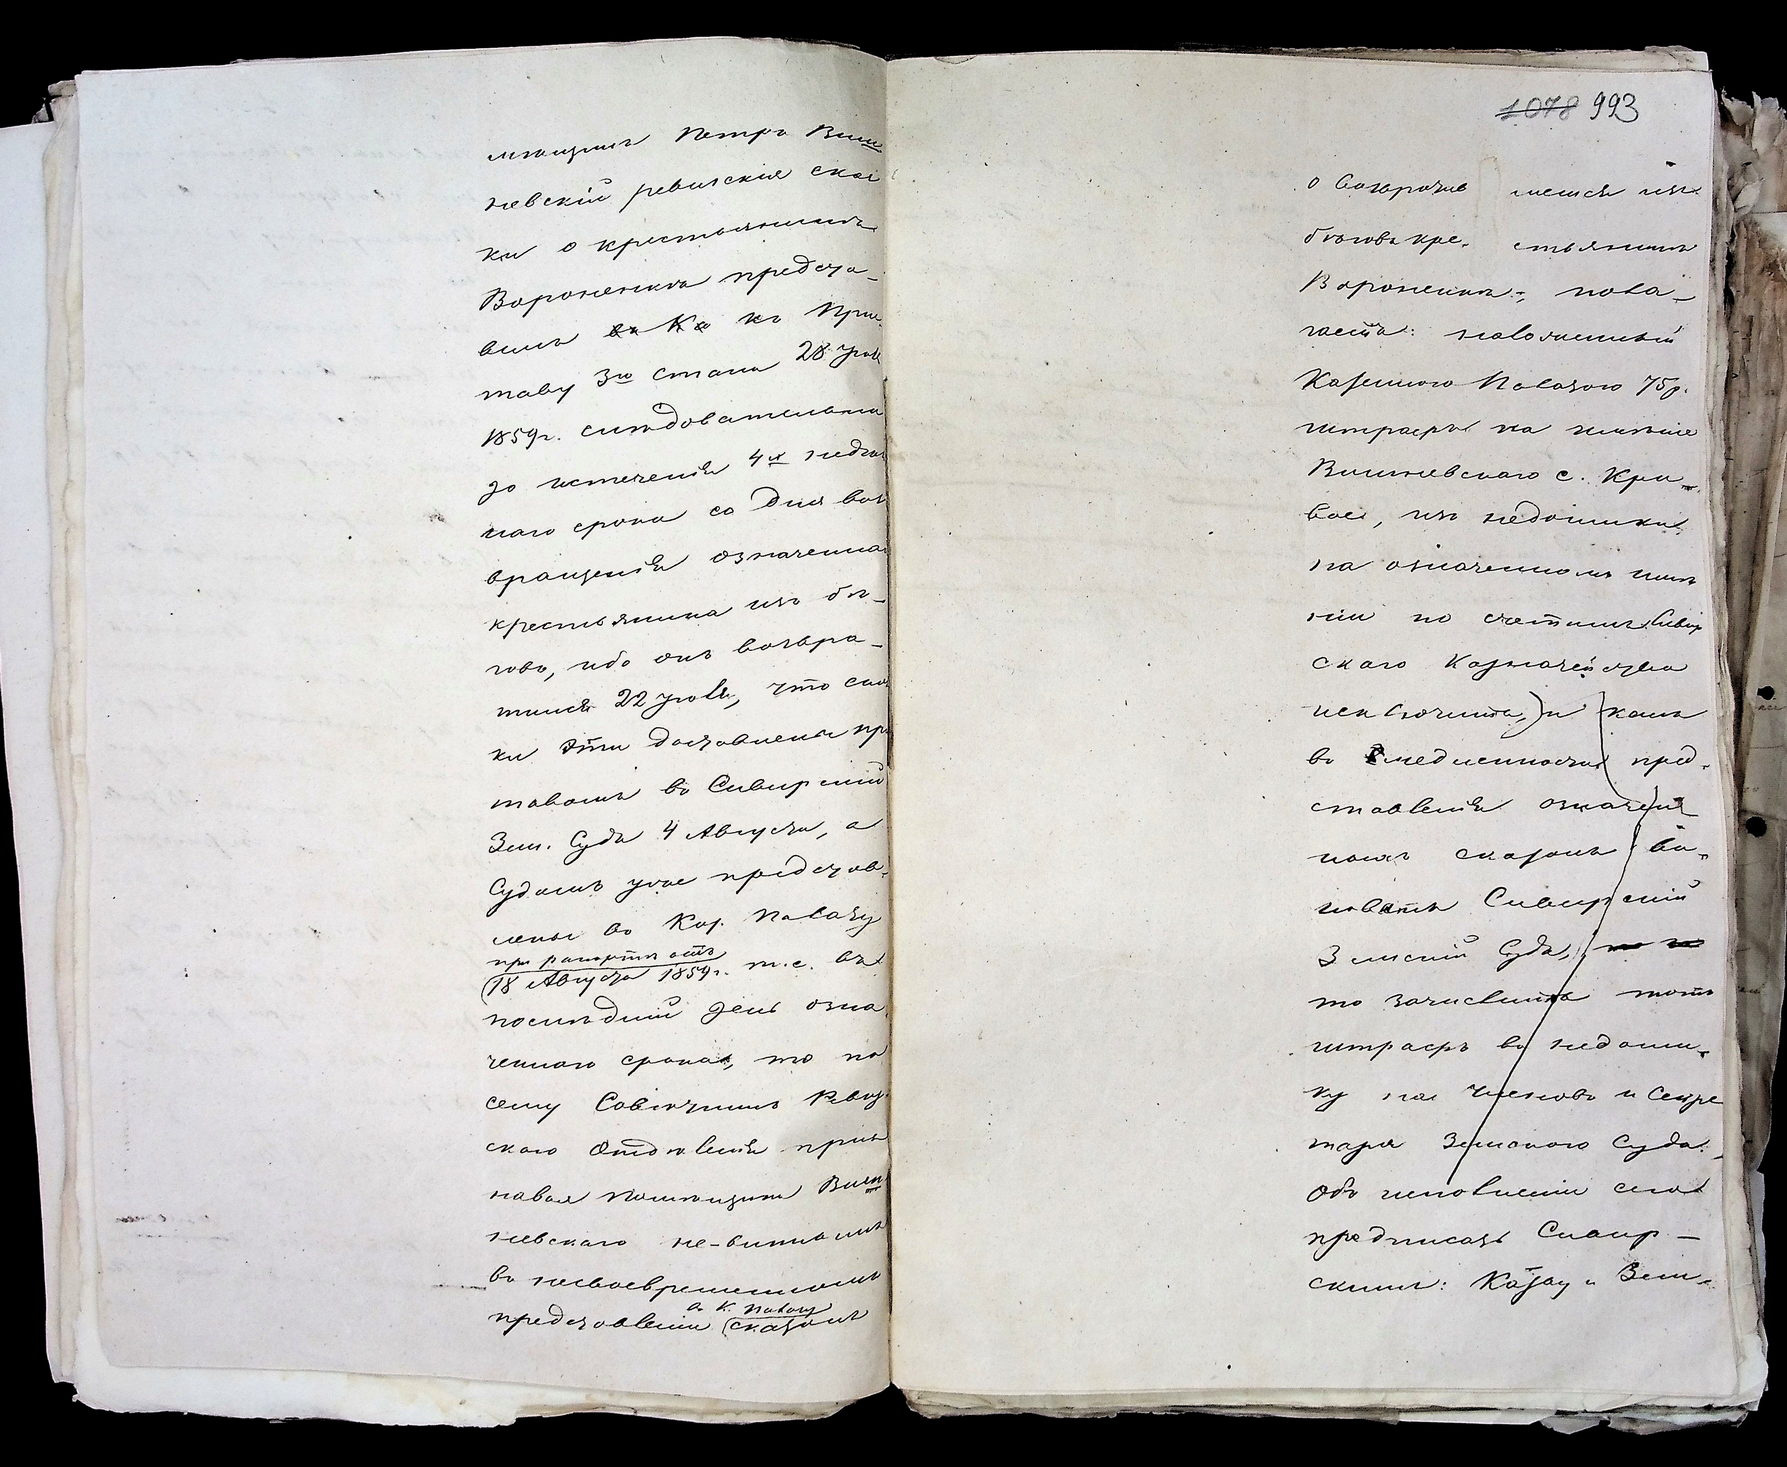 мѣщикъ Петръ Виш
невскій ревизскія сказ
ки о крестьянинѣ
Вороненкѣ предста-
вилъ въ Ка къ При
ставу 3го стана 28 Іюля
1859г. слѣдовательно
до истеченія 4х недѣль
наго срока со дня воз
вращенія означеннаго
крестьянина изъ бѣ-
говъ, ибо онъ возвра-
тился 22 Іюля, что сказ
ки эти доставлены при
ставомъ въ Сквирскій
Зем. Судъ 4 Августа, а
Судомъ уже представ-
лены въ Каз. Палату
при рапортѣ отъ
18 Августа 1859г. т.е. въ
послѣдній день озна
ченнаго срока, то по
сему Совѣтникъ Ревиз
скаго Отдѣленія приз
навая помѣщика Виш
невскаго не-виннымъ
въ несвоевременномъ
представленіи въ К. Палату сказокъ
1078 993
о возвратив шемся изъ
бѣговъ кре- стьянинѣ
Вороненкѣ, пола-
гаетъ: наложенный
Казенною Палатою 75р.
штрафъ на имѣніе
Вишневскаго с. Кри-
вое, изъ недоимки
на означенномъ имѣ
ніи по счетамъ Сквир
скаго Казначейства
исключить, и какъ
въ медленности пред-
ставленія означен
ныхъ сказокъ ви-
новатъ Сквирскій
Земскій Судъ,
то зачислить тотъ
штрафъ въ недоим-
ку на членовъ и Секре
таря Земскаго Суда.
Объ исполненіи сего
предписать Сквир-
скимъ: Каз-ву и Зем-